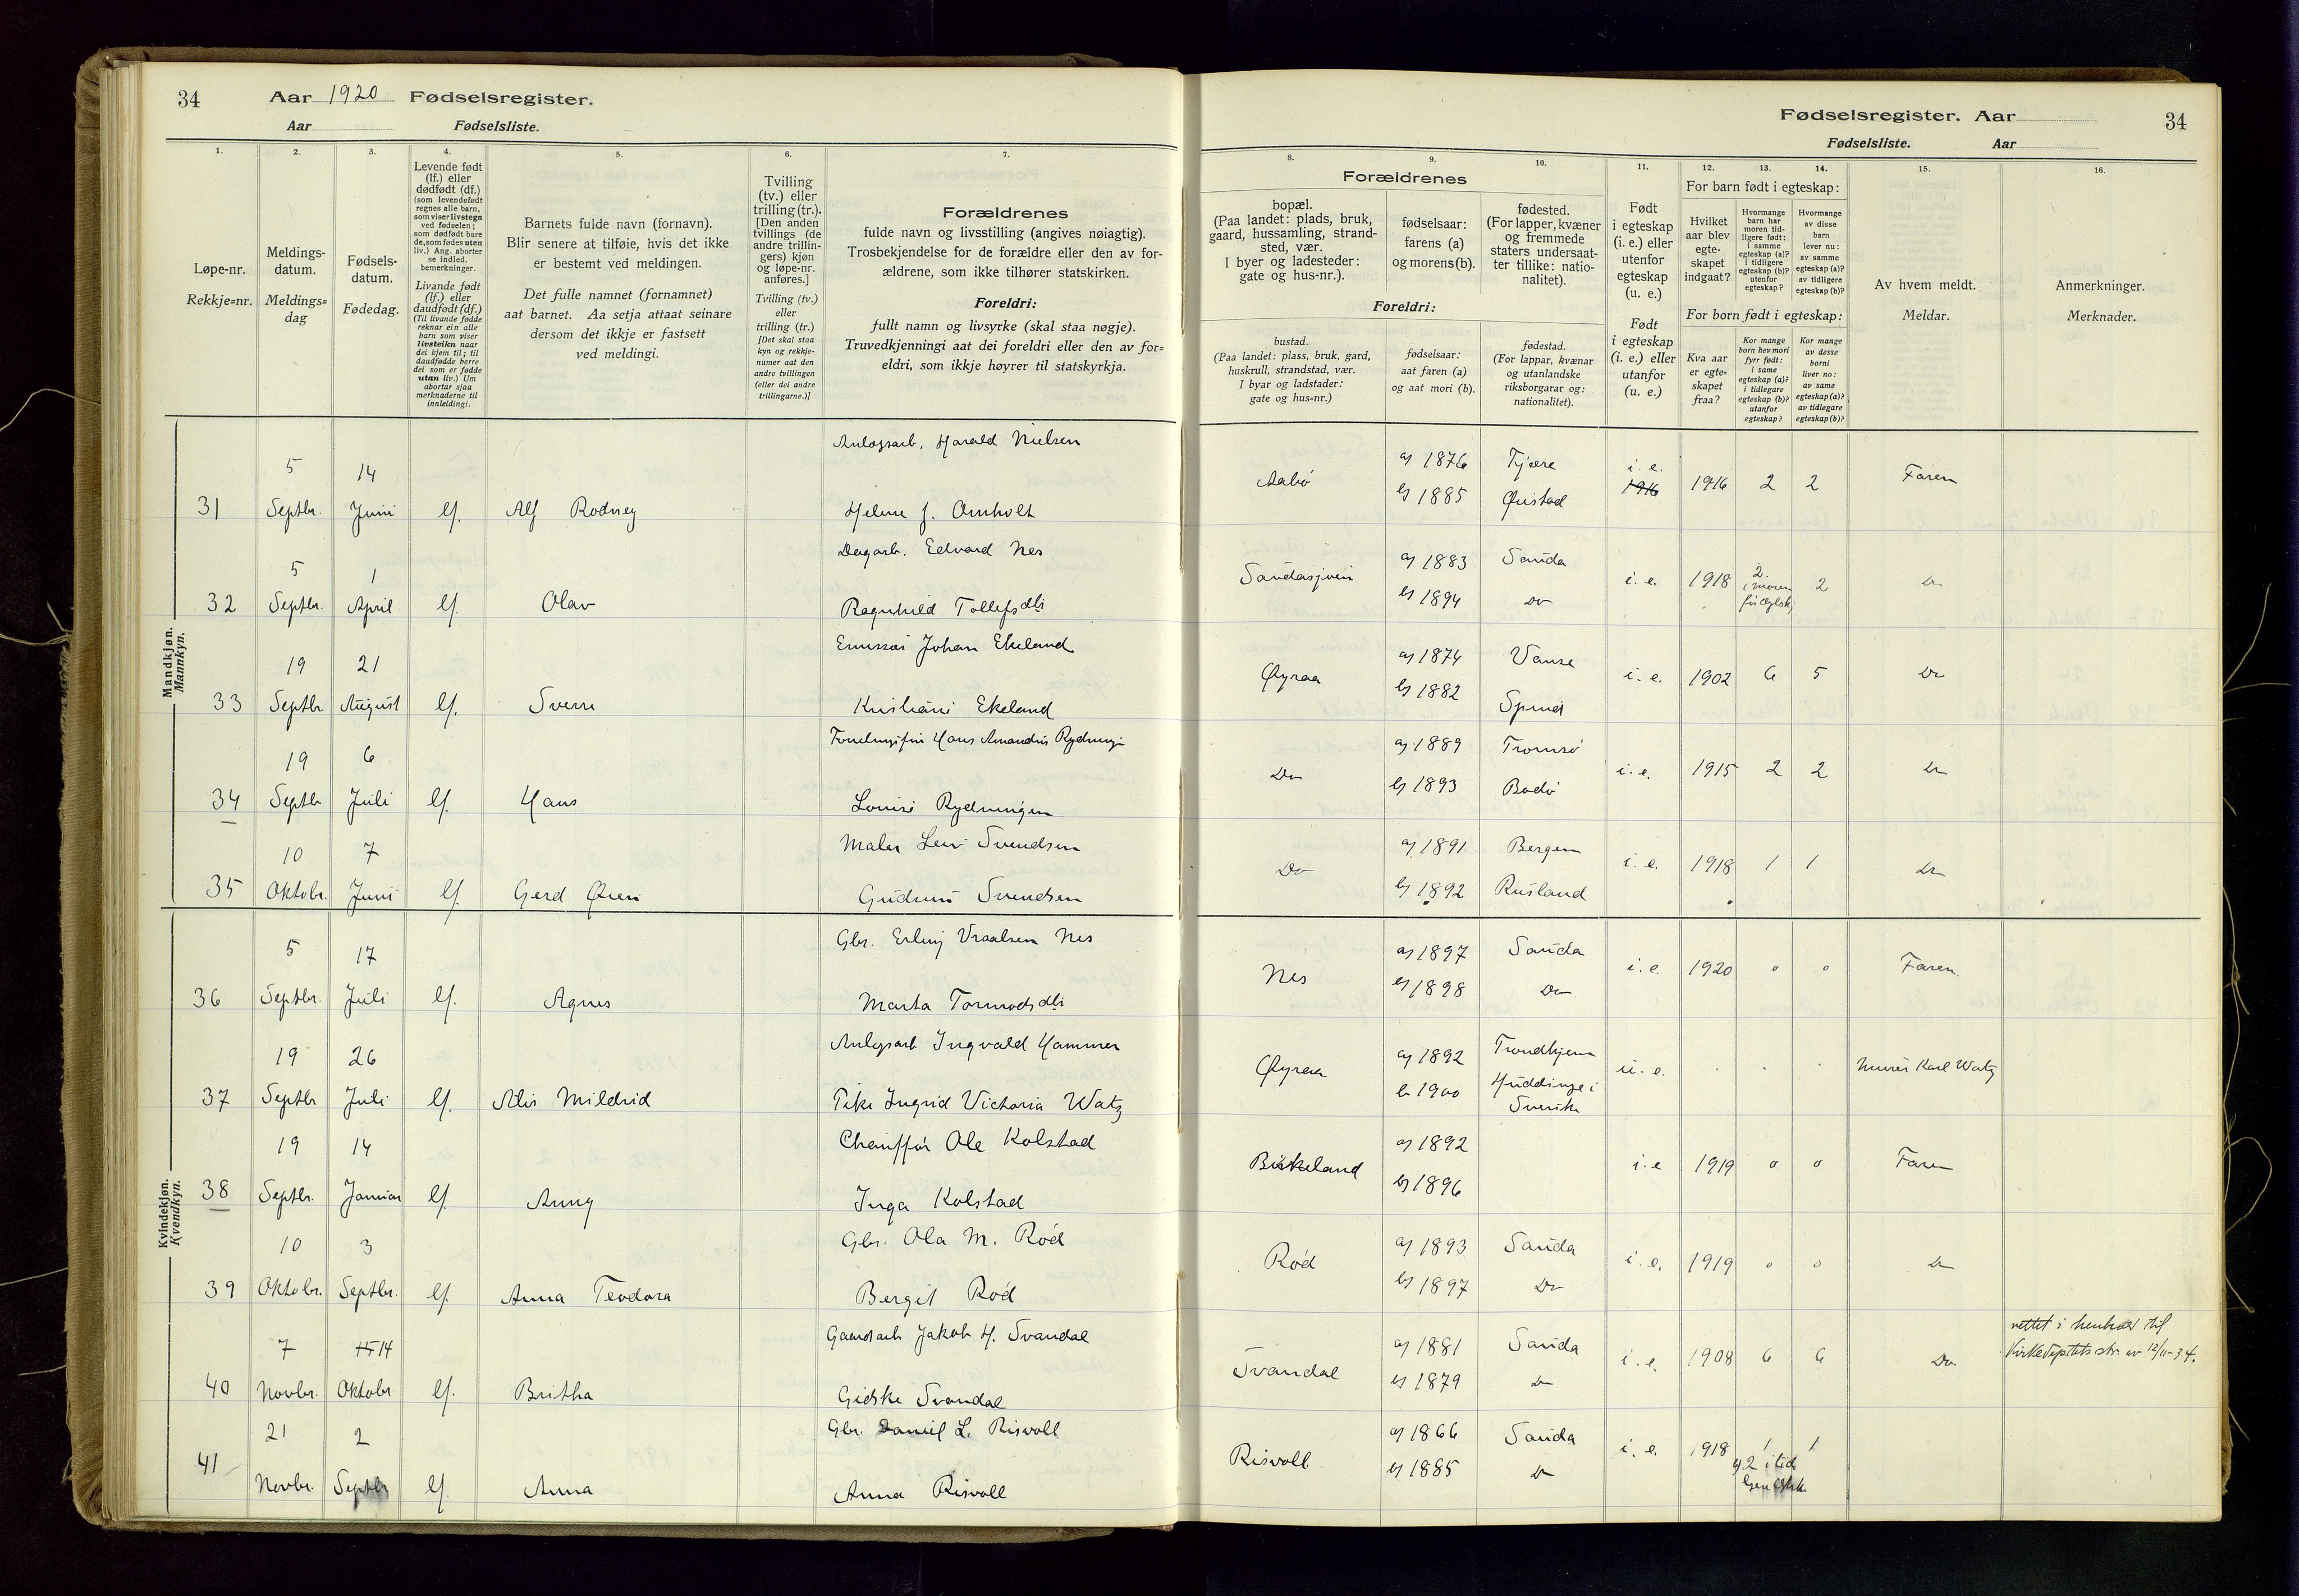 34 Aar 1920 Fødselsregister.
Aar Fødselsliste.
Fødselsregister. Aar 34
Fødselsliste. Aar
1. 2. 3. 4. 5. 6. 7. 8. 9. 10. 11. 12. 13. 14. 15. 16.
Løpe-nr.
Rekkje=nr.
Meldings-
datum.
Meldings=
dag
Fødsels-
datum.
Fødedag.
Levende født
(lf.) eller
dødfødt (df.)
(som levendefødt
regnes alle barn,
som viser livstegn
ved fødselen;
som dødfødt bare
de, som fødes uten
liv.) Ang. aborter
se indled.
bemerkninger.
Livande født
(lf.) eller
daudfødt (df.)
(Til livande fødde
reknar ein alle
barn som viser
livsteikn naar
dei kjem til; til
daudfødde berre
dei som er fødde
utan liv.) Um
abortar sjaa
merknaderne til
innleidingi.
Barnets fulde navn (fornavn).
Blir senere at tilføie, hvis det ikke
er bestemt ved meldingen.
Det fulle namnet (fornamnet)
aat barnet. Aa setja attaat seinare
dersom det ikkje er fastsett
ved meldingi.
Tvilling
(tv.) eller
trilling (tr.).
[Den anden
tvillings (de
andre trillin-
gers) kjøn
og løpe-nr.
anføres.]
Tvilling (tv.)
eller
trilling (tr.)
[Det skal staa
kyn og rekkje-
numer aat den
andre tvillingen
(eller dei andre
trillingarne.)]
Forældrenes
fulde navn og livsstilling (angives nøiagtig).
Trosbekjendelse for de forældre eller den av for-
ældrene, som ikke tilhører statskirken.
Foreldri:
fullt namn og livsyrke (skal staa nøgje).
Truvedkjenningi aat dei foreldri eller den av for=
eldri, som ikkje høyrer til statskyrkja.
Forældrenes
bopæl.
(Paa landet: plads, bruk,
gaard, hussamling, strand-
sted, vær.
I byer og ladesteder:
gate og hus-nr.).
fødselsaar:
farens (a)
og morens (b).
fødested.
(For lapper, kvæner
og fremmede
staters undersaat-
ter tillike: natio-
nalitet).
Foreldri:
bustad.
(Paa landet: plass, bruk, gard,
huskrull, strandstad, vær.
I byar og ladstader:
gate og hus=nr.)
fødselsaar:
aat faren (a)
og aat mori (b).
fødestad.
(For lappar, kvænar
og utanlandske
riksborgarar og:
nationalitet).
Født
i egteskap
(i. e.) eller
utenfor
egteskap
(u. e.)
Født
i egteskap
(i. e.) eller
utanfor
(u. e.)
For barn født i egteskap:
Hvilket
aar blev
egte-
skapet
indgaat?
Hvormange
barn har
moren tid-
ligere født:
i samme
egteskap (a)?
i tidligere
egteskap (b)?
utenfor
egteskap?
Hvormange
av disse
barn
lever nu:
av samme
egteskap (a)?
av tidligere
egteskap (b)?
For born født i egteskap:
Kva aar
er egte=
skapet
fraa?
Kor mange
born hev mori
fyrr født:
i same
egteskap (a)?
i tidlegare
egteskap (b)?
utanfor
egteskap?
Kor mange
av desse
borni
liver no:
av same
egteskap (a)?
av tidlegare
egteskap (b)?
Av hvem meldt.
Meldar.
Anmerkninger.
Merknader.
Mandkjøn.
Mannkyn.
31 5 Septbr. 14 Juni lf. Alf Rodney Anlægsarb. Harald Nielsen
Helene J. Arnholt
Aabø a) 1876 Tjøre i. e. 1916 1916 2 2 Faren
b) 1885 Øiestad
32 5 Septbr. 1 April lf. Olav Dagarb. Edvard Nes
Ragnhild Tollefsdtr
Saudasjøen a) 1883 Sauda i. e. 1918 2 2 Do
b) 1894 Do
33 19 Septbr 21 August lf. Sverre Johan Ekeland
Kristiane Ekeland
Øyraa a) 1874 Vanse i. e. 1902 6 5 Do
b) 1882 Spind
34 19 Septbr 6 Juli lf. Hans Hans Amandus Rydningen
Louise Rydningen
Do a) 1889 Tromsø i. e. 1915 2 2 Do
b) 1893 Bodø
35 10 Oktobr. 7 Juni lf. Gerd Maler Leiv Svendsen
Gudrun Svendsen
Do a) 1891 Bergen i. e. 1918 1 1 Do
b) 1892 Rusland
Kvindekjøn.
Kvendkyn.
36 5 Septbr. 17 Juli lf. Agnes Gbr. Erling Vraalsen Nes
Marta Tormodsdtr
Nes a) 1897 Sauda i. e. 1920 0 0 Faren.
b) 1898 Do
37 19 Septbr 26 Juli lf. Alis Mildrid Anlegsarb Ingvald Hammer
Pike Ingrid Victoria Watz
Øyraa a) 1892 Trondhjem u. e. Murer Karl Watz
b 1900 Huddinge i
Sverike
38 19 Septbr. 14 Januar lf. Anny Chauffør Ole Kolstad
Inga Kolstad
Birkeland a) 1892 i. e 1919 0 0 Faren
b) 1896
39 10 Oktobr. 3 Septbr. lf. Anna Teodora Gbr. Ola M. Rød
Bergit Rød
Rød a) 1893 Sauda i. e. 1919 0 0 Do
b) 1897 Do
40 7 Novbr. 15 14 Oktobr lf. Britha Gaardarb Jakob H. Svandal
Gidske Svandal
Svandal a) 1881 Sauda i. e. 1908 6 6 Do. rettet i henhold til
b) 1879 Do Kirkedeptets skr. av 12/11-34.
41 21 Novbr. 2 Septbr lf. Anna Gbr. Daniel L. Risvoll
Anna Risvoll
Risvoll a) 1866 Sauda i. e. 1918 1 1
b) 1885 Do